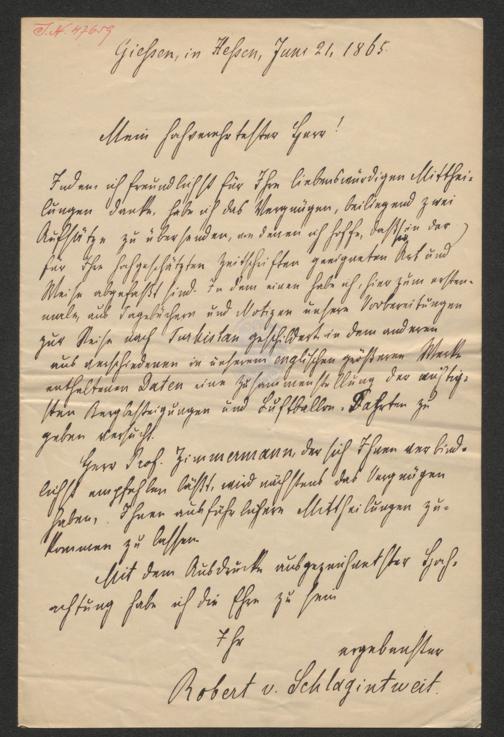 I.N. 47659
Giessen, in Hessen, Juni 21, 1865.
Mein hochverehrtester Herr!
Indem ich freundlichst für Ihre liebenswürdigen Mitthei-
lungen danke, habe ich das Vergnügen, beiliegend zwei
Aufsätze zu übersenden, von denen ich hoffe, daß sie in der
für Ihre hochgeschätzten Zeitschriften geeigneten Art und
Weise abgefaßt sind. In dem einen habe ich, hier zum ersten-
male, aus Tagebüchern und Notizen unsere Vorbereitungen
zur Reise nach Turkistan geschildert; in dem anderen
aus verschiedenen in unserem englischen größeren Werke
enthaltenen Daten eine Zusammenstellung der wichtig-
sten Bergbesteigungen und Luftballon-Fahrten zu
geben versucht.
Herr Prof. Zimmermann, der sich Ihnen verbind-
lichst empfehlen läßt, wird nächstens das Vergnügen
haben, Ihnen ausführlichere Mittheilungen zu-
kommen zu lassen.
Mit dem Ausdrucke ausgezeichnetster Hoch-
achtung habe ich die Ehre zu sein
Ihr
ergebenster
Robert v. Schlagintweit.